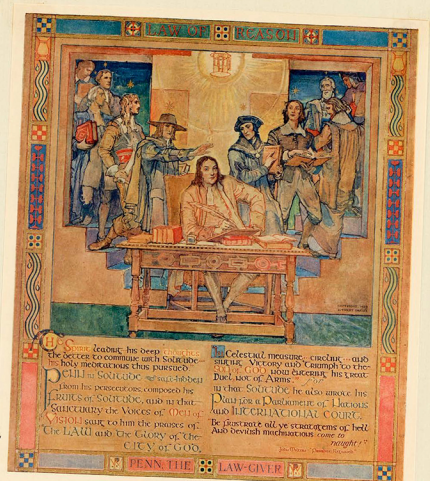 LAW OF REASON
The Spirit leading his deep thoughts
the better to commune with Solitude
his holy meditations thus pursued.
PENN in SOLITUDE safe hidden
from his persecutors composed his
FRUITS of SOLITUDE, and in that
SANCTUARY the Voices of MEN of
VISION sang to him the praises of
The LAW and the GLORY of the
CITY of GOD.
Celestial measures circling and
singing Victory and Triumph to the
SON of GOD now entering his great
Duel, not of Arms
in that SOLITUDE he also wrote his
PLAN for a PARLIAMENT of NATIONS
AND INTERNATIONAL COURT.
Be frustrate all ye stratagems of hell
And devilish machinations come to
naught!
PENN THE LAW-GIVER